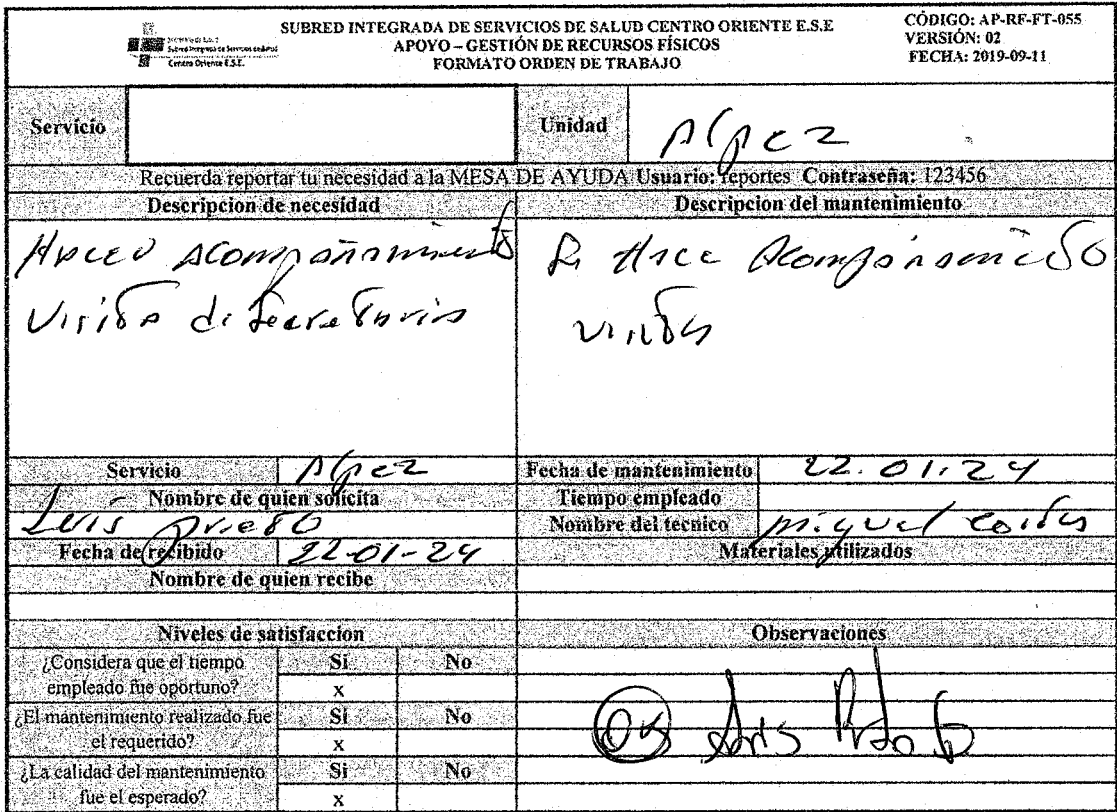 SUBRED INTEGRADA DE SERVICIOS DE SALUD CENTRO ORIENTE E.S.E
APOYO – GESTIÓN DE RECURSOS FÍSICOS
FORMATO ORDEN DE TRABAJO
CÓDIGO: AP-RF-FT-055
VERSIÓN: 02
FECHA: 2019-09-11
Subred Integrada de Servicios de Salud
Centro Oriente E.S.E.
Servicio
Unidad
Recuerda reportar tu necesidad a la MESA DE AYUDA Usuario: reportes Contraseña: 123456
Descripcion de necesidad
Hacer Acompañamiento
Visita de Secretaria
Descripcion del mantenimiento
Se Hace Acompañamiento
visita
Servicio
Nombre de quien solicita
Luis Prieto
Fecha de recibido 22-01-24
Nombre de quien recibe
Fecha de mantenimiento 22.01.24
Tiempo empleado
Nombre del tecnico Miguel
Materiales utilizados
Niveles de satisfaccion
¿Considera que el tiempo Si No
empleado fue oportuno? x
¿El mantenimiento realizado fue Si No
el requerido? x
¿La calidad del mantenimiento Si No
fue el esperado? x
Observaciones
OK Luis